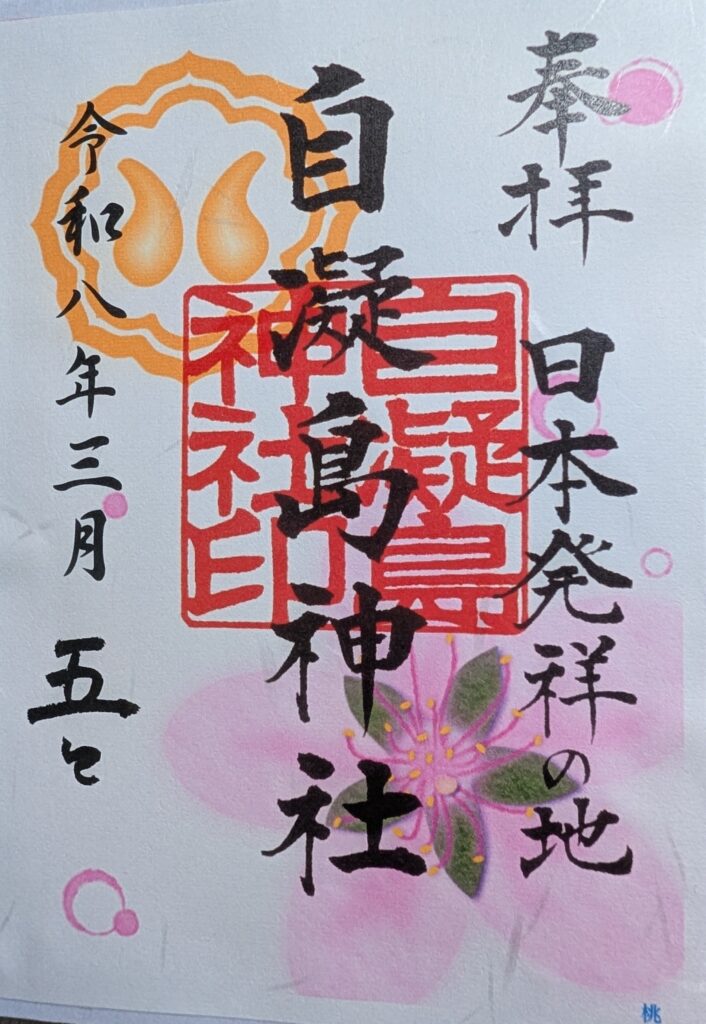 奉拝
日本発祥の地
自凝島神社
自凝島
神社印
令和八年三月五日
桃